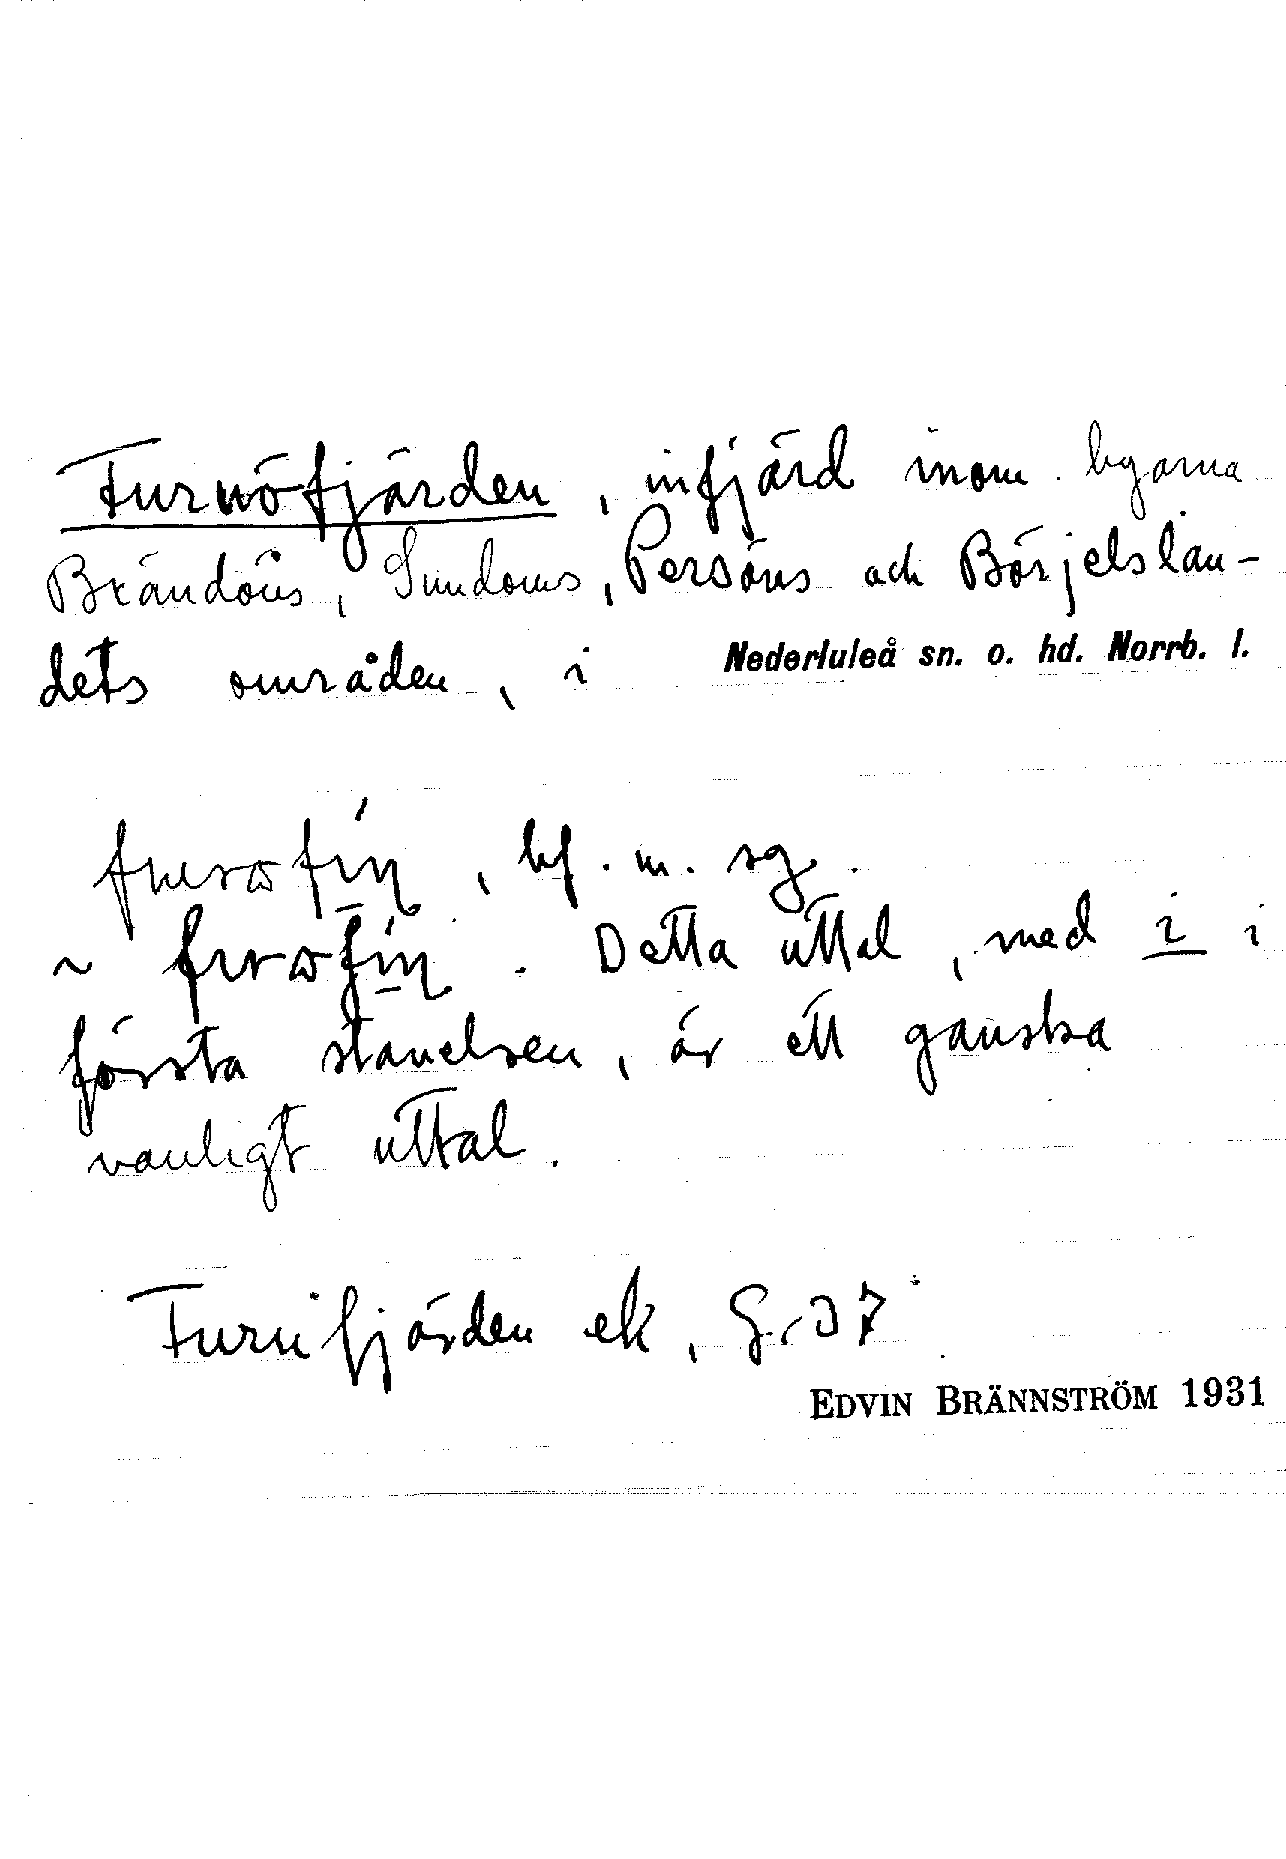 Furnöfjärden, infjärd inom byarna
Brändöns, Sundoms, Persöns och Börjelslan-
dets områden, i Nederluleå sn. o. hd. Norrb. l.
, bf. m. sg.
~ . Detta uttal, med i i
första stavelsen, är ett ganska
vanligt uttal.
Furufjärden ek, G. 37
EDVIN BRÄNNSTRÖM 1931